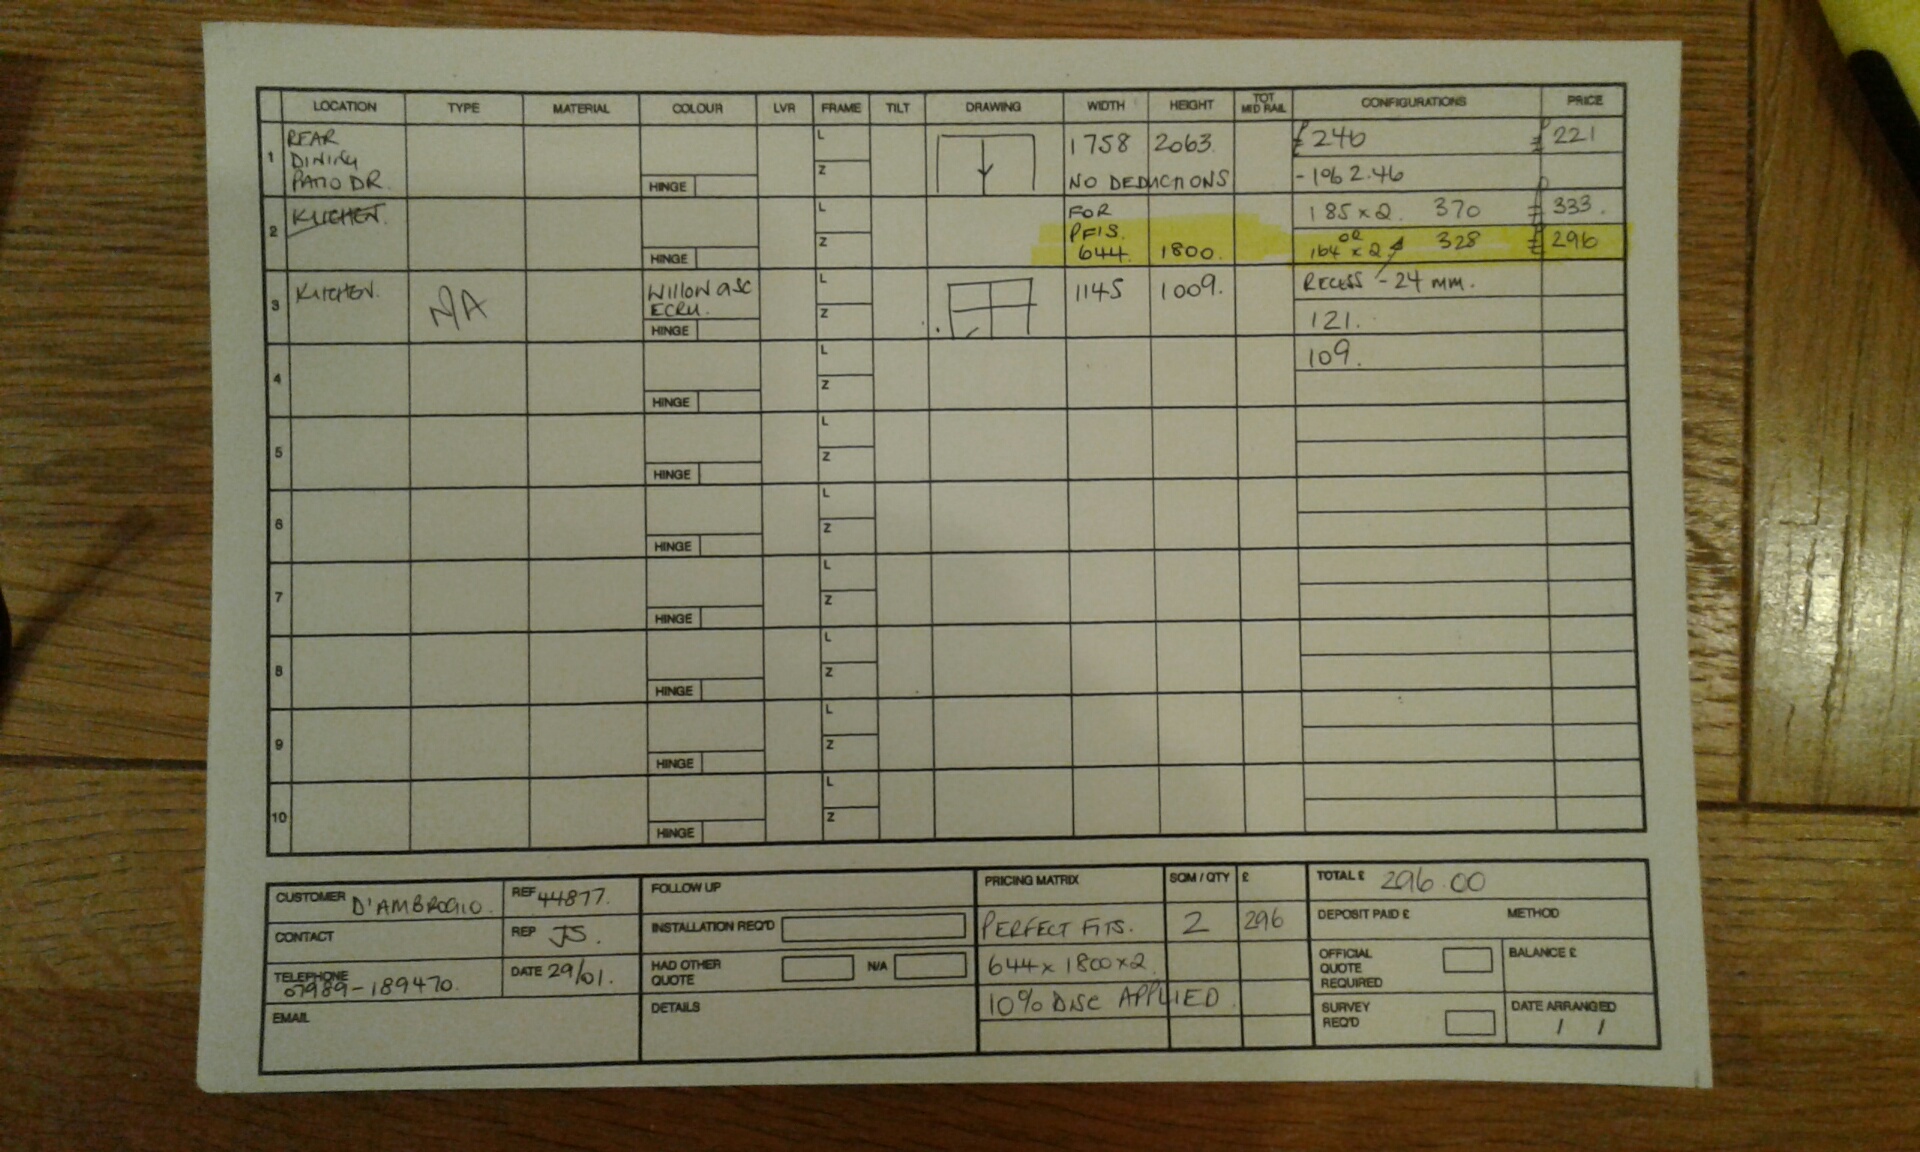 LOCATION TYPE MATERIAL COLOUR LVR FRAME TILT DRAWING WIDTH HEIGHT TOT MID RAIL CONFIGURATIONS PRICE
1 REAR DINING PATIO DR. HINGE L Z 1758 2063. NO DEDUCTIONS £246 £221
-1% 2.46
2 KITCHEN. HINGE L Z FOR PFIS. 644 1800. 185 x 2. 370 £333.
OR
164 x 2 328 £296
3 KITCHEN. N/A WILLOW ECRU. HINGE L Z 1145 1009. RECESS -24 mm.
121.
4 HINGE L Z 109.
5 HINGE L Z
6 HINGE L Z
7 HINGE L Z
8 HINGE L Z
9 HINGE L Z
10 HINGE L Z
CUSTOMER D'AMBROGIO. REF 44877.
CONTACT REP JS.
TELEPHONE 07989-189470. DATE 29/01.
EMAIL
FOLLOW UP
INSTALLATION REQ'D
HAD OTHER QUOTE N/A
DETAILS
PRICING MATRIX SQM / QTY £
PERFECT FITS. 2 296
644 x 1800 x 2
10% DISC APPLIED.
TOTAL £ 296.00
DEPOSIT PAID £ METHOD
OFFICIAL QUOTE REQUIRED BALANCE £
SURVEY REQ'D DATE ARRANGED
/ /